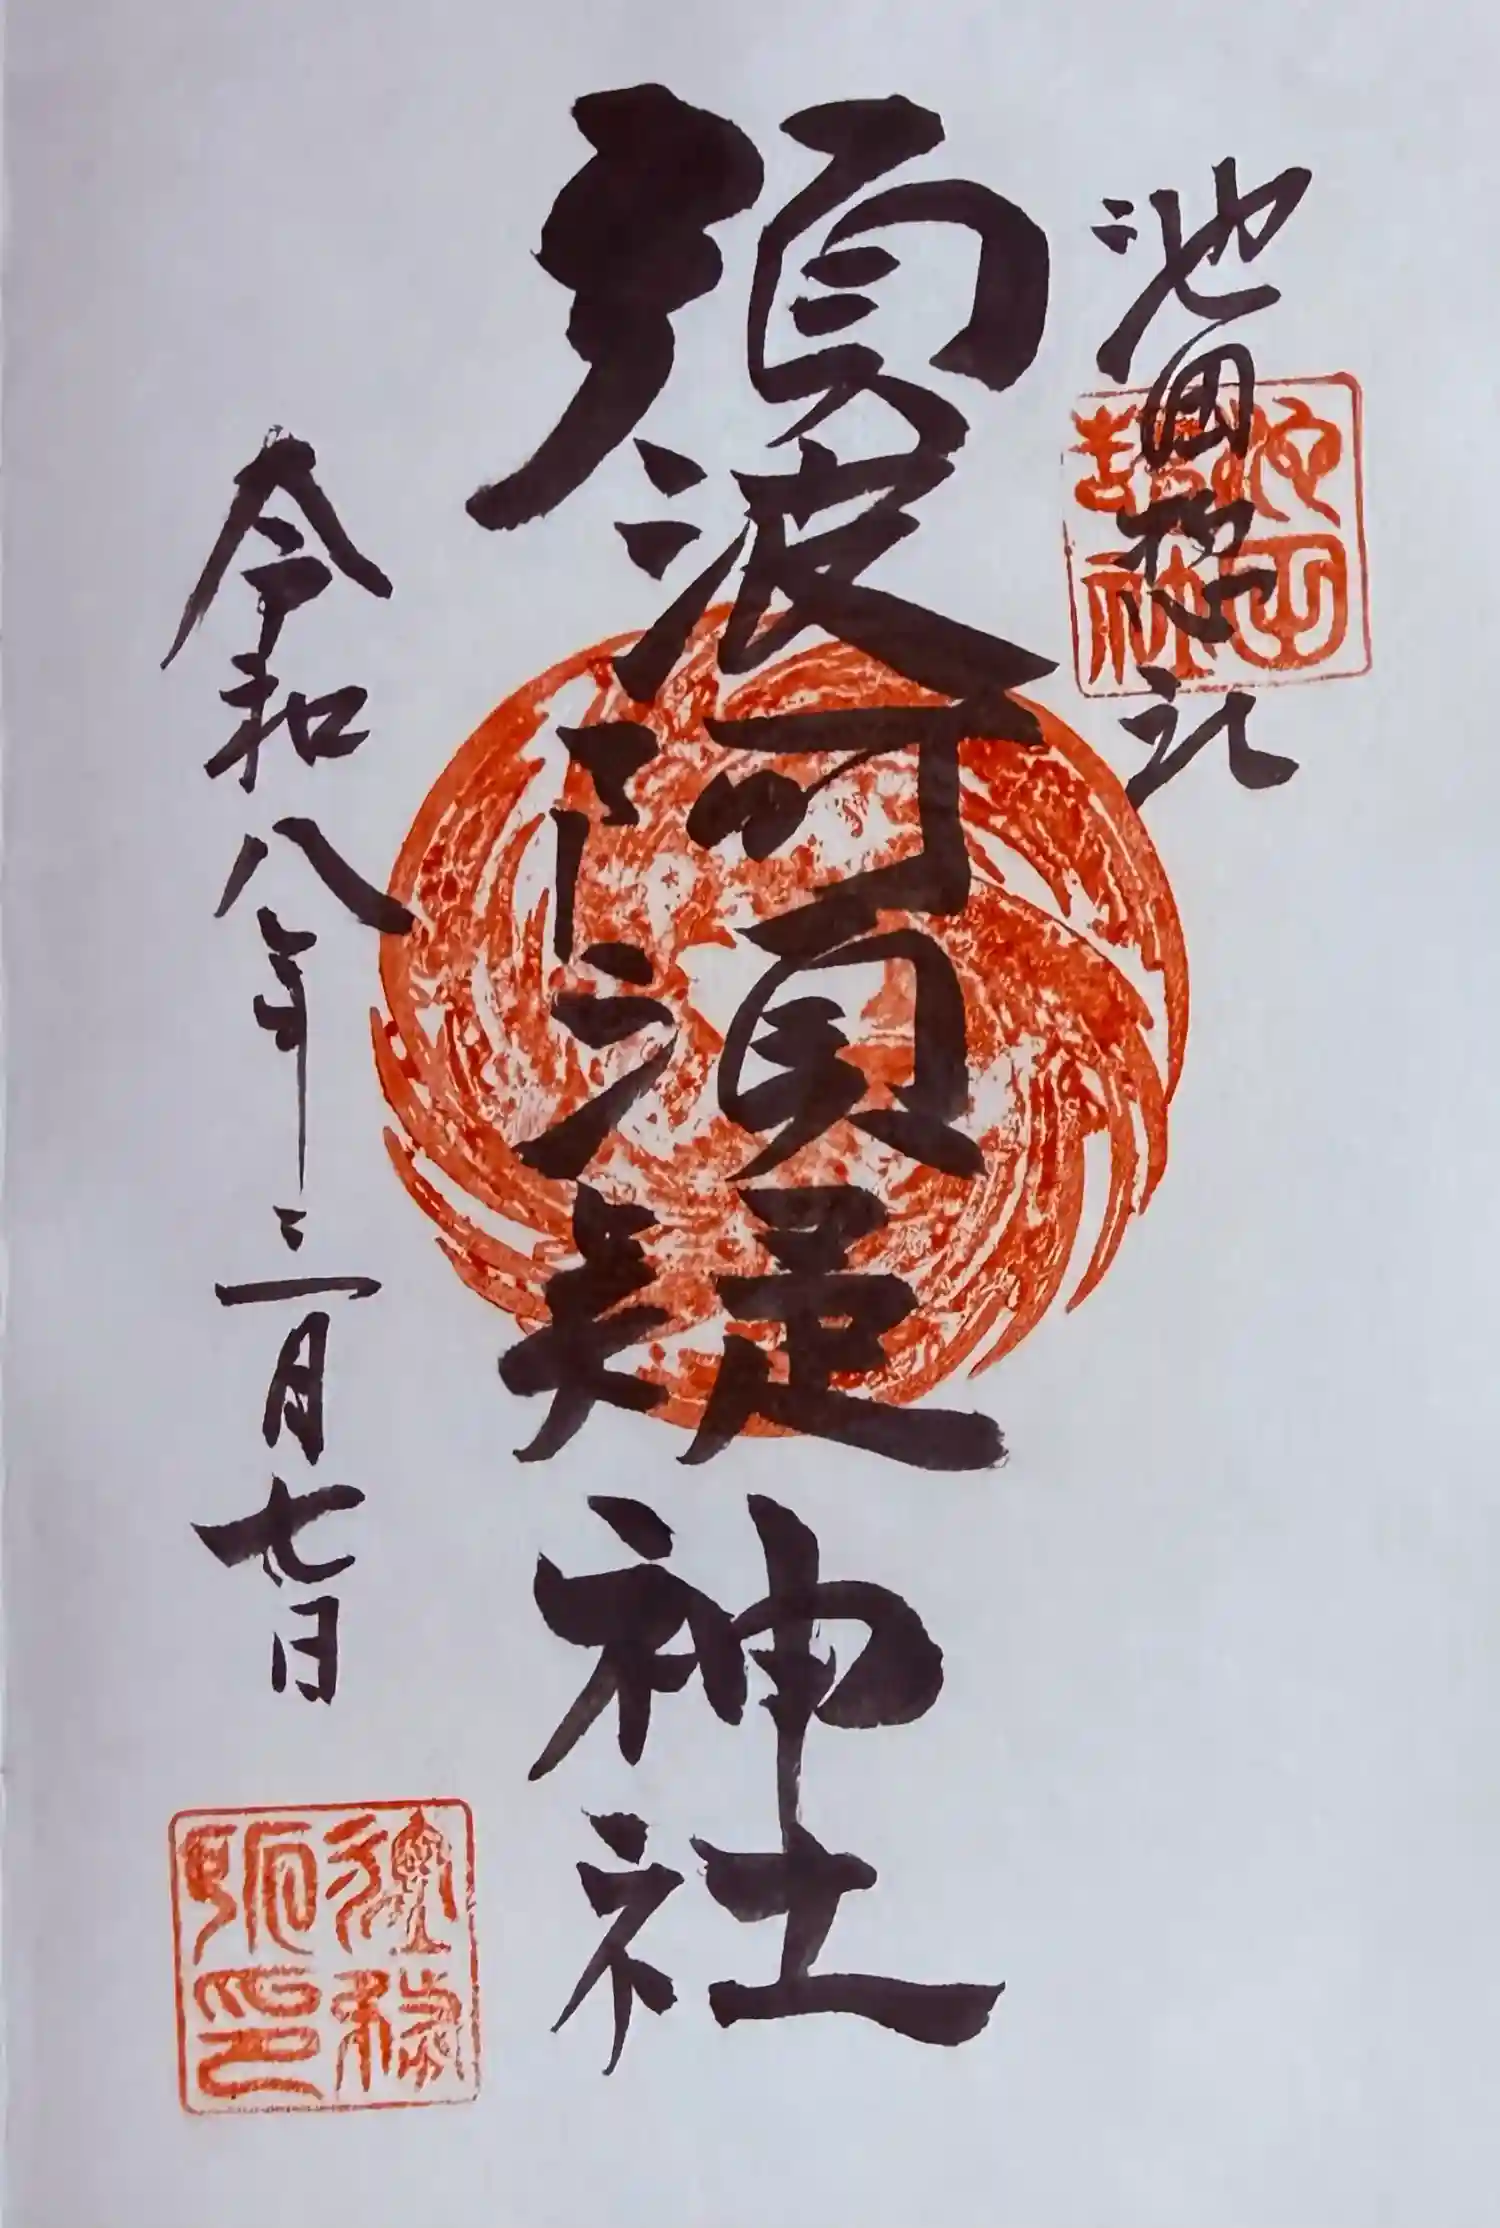 池田惣社
須波阿湏疑神社
令和八年三月七日